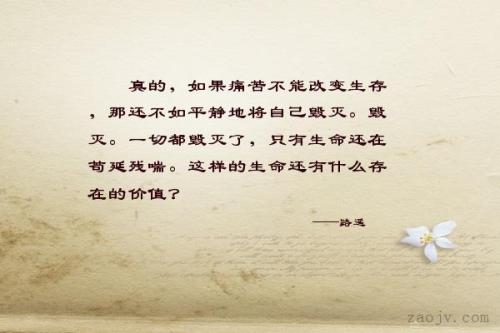 真的，如果痛苦不能改变生存
，那还不如平静地将自己毁灭。毁
灭。一切都毁灭了，只有生命还在
苟延残喘。这样的生命还有什么存
在的价值？
——路遥
zaojv.com